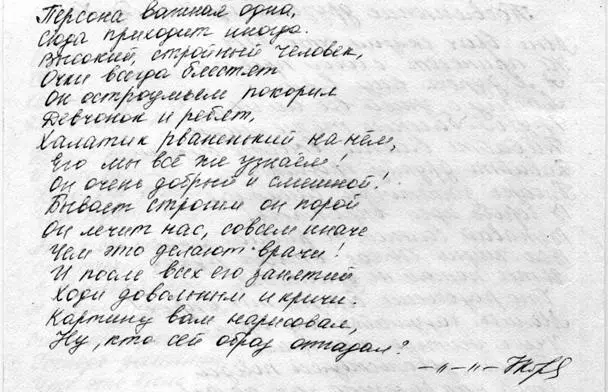 Персона важная одна,
Сюда приходит иногда.
Высокий, стройный человек,
Очи всегда блестят
Он остроумьем покорил
Девчонок и ребят,
Халатик рваненький на нём,
Его мы всё же узнаём!
Он очень добрый и смешной!
Бывает строгим он порой
Он лечит нас, совсем иначе
Чем это делают врачи!
И после всех его занятий
Ходи довольным и кричи.
Картину вам нарисовал,
Ну, кто сей образ отгадал?